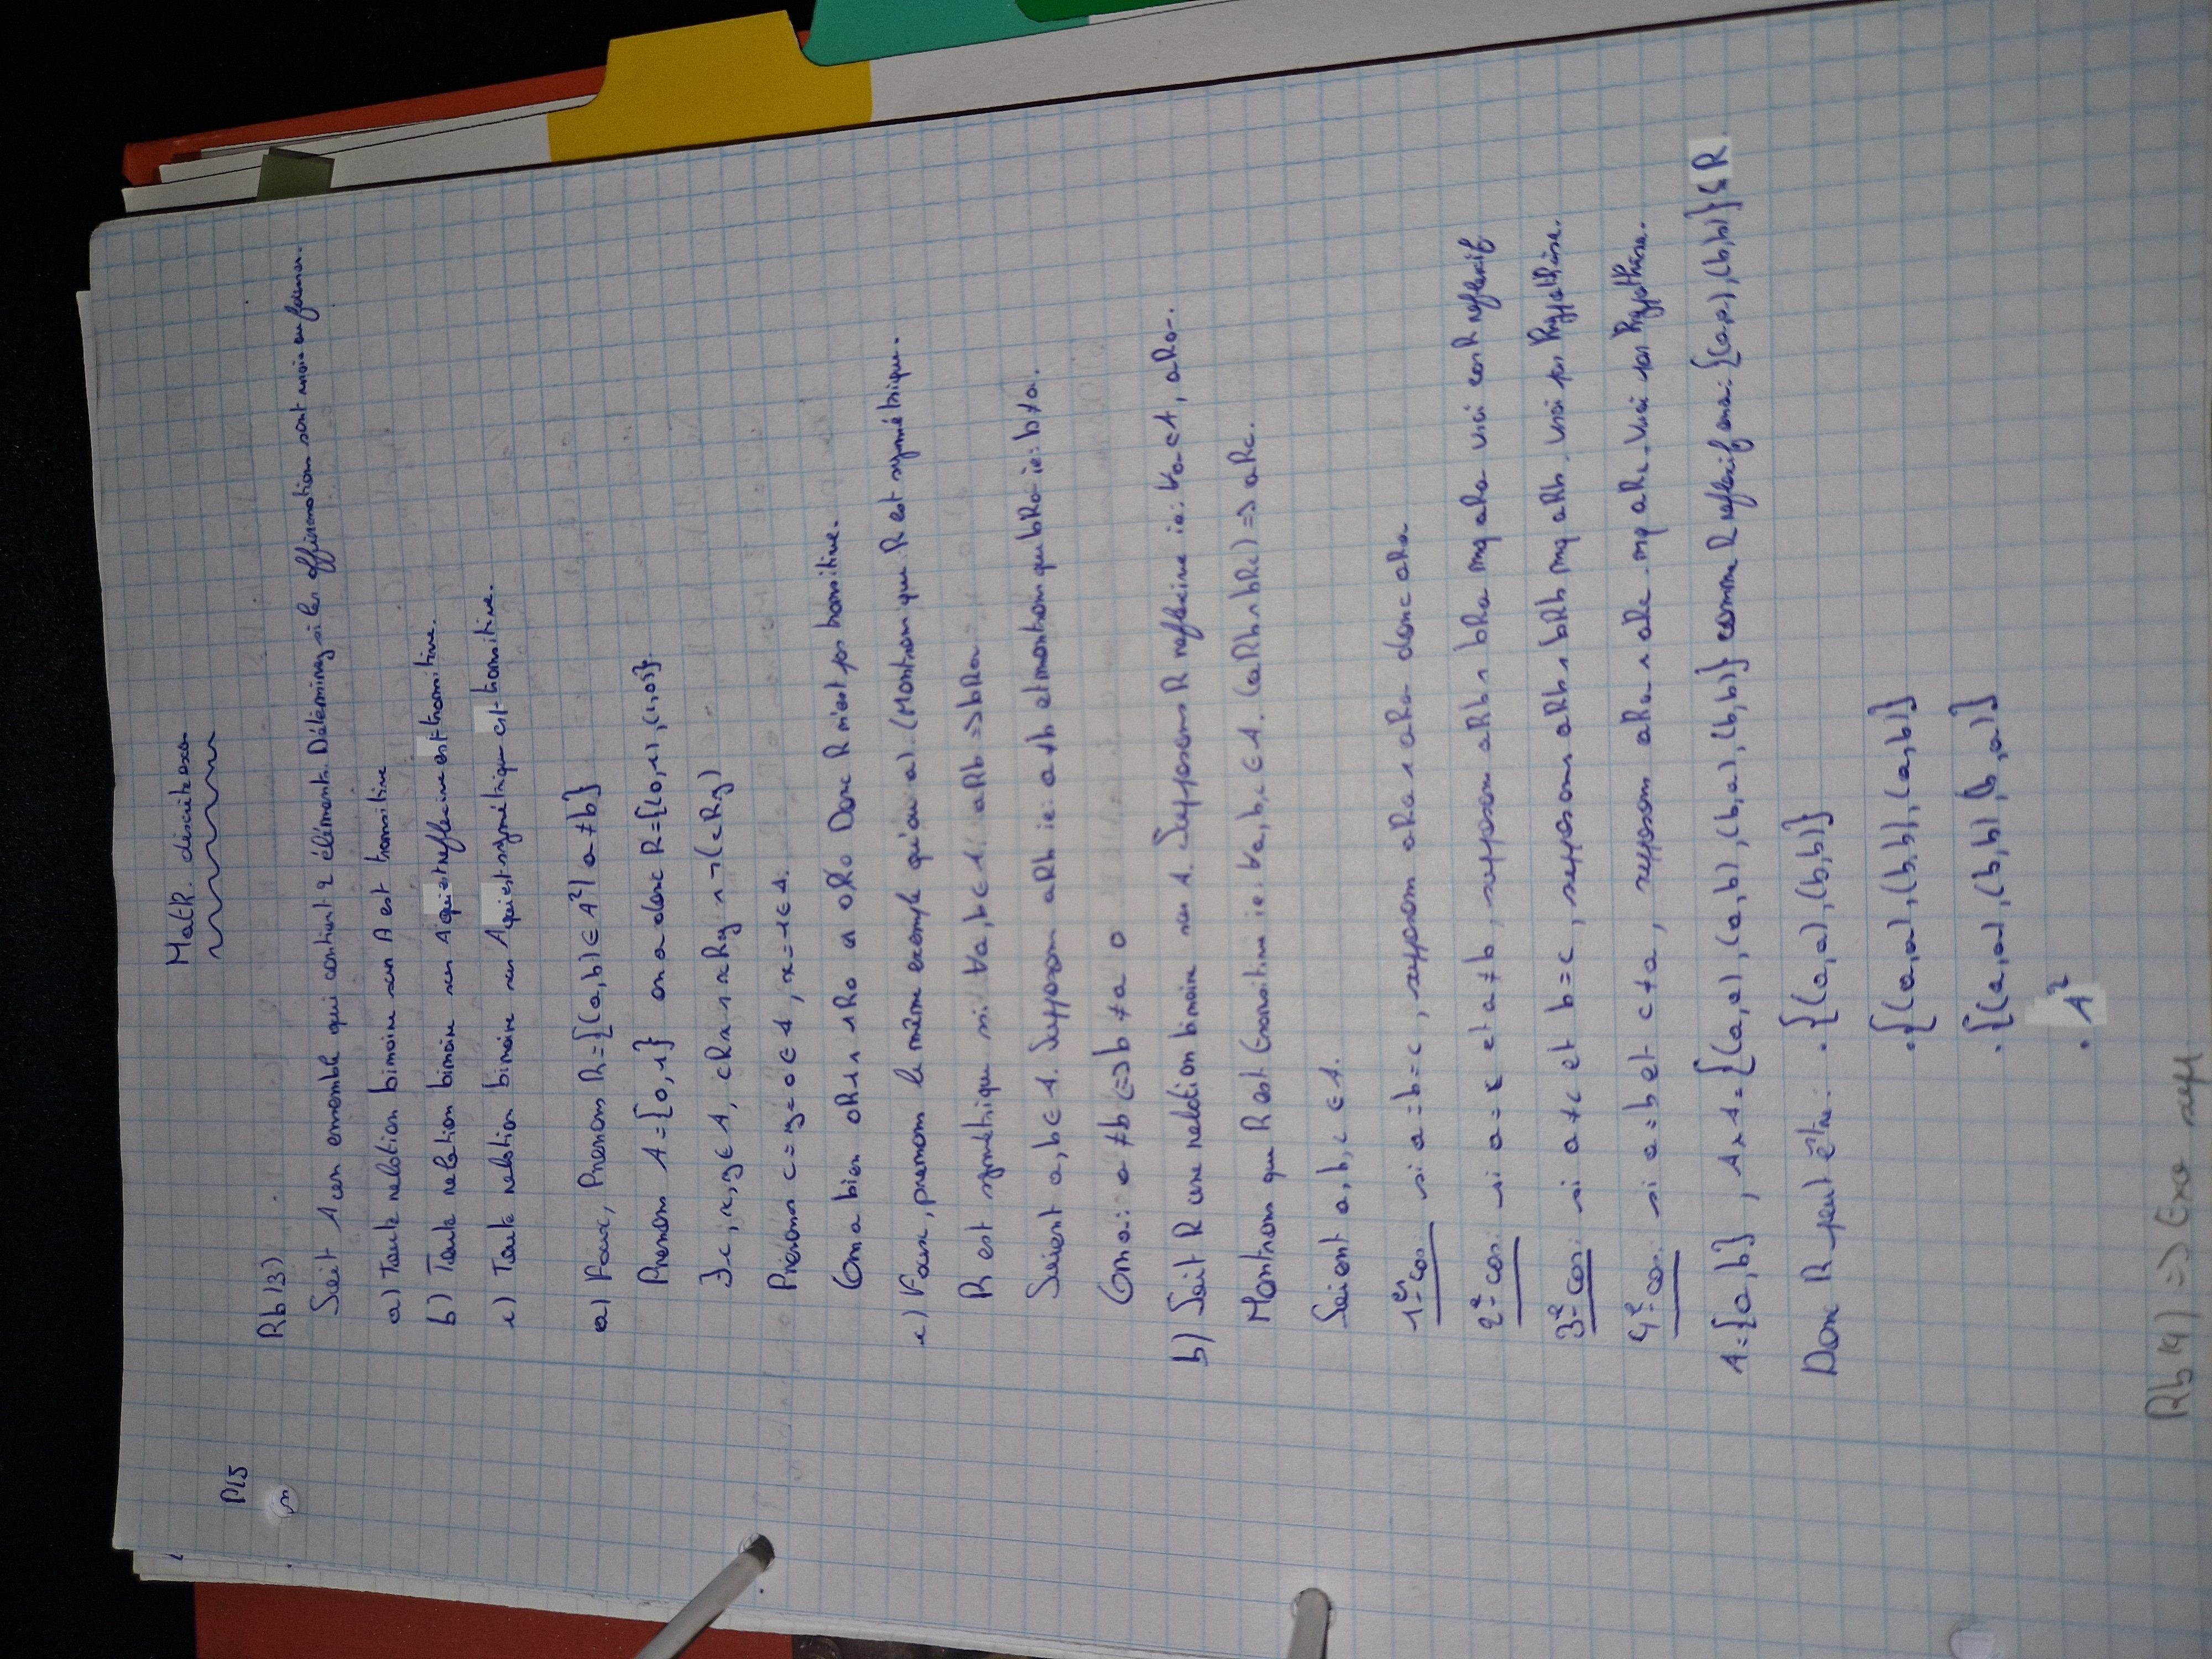 Math. discrète exo
P15
Rb 13)
Soit A un ensemble qui contient 2 éléments. Déterminez si les affirmations sont vraies ou fausses.
a) Toute relation binaire sur A est transitive
b) Toute relation binaire sur A qui est reflexive est transitive.
c) Toute relation binaire sur A qui est symétrique est transitive.
a) Faux, Prenons R = {(a,b) ∈ A² | a ≠ b}
Prenons A = {0,1} on a donc R = {(0,1), (1,0)}.
∃c, x, y ∈ A, cRx ∧ xRy ∧ ¬(cRy)
Prenons c = y = 0 ∈ A, x = 1 ∈ A.
On a bien 0R1 ∧ 1R0 et 0R̸0 Donc R n'est pas transitive.
c) Faux, prenons le même exemple qu'au a). (Montrons que R est symétrique.
R est symétrique si ∀a, b ∈ A. aRb => bRa
Soient a, b ∈ A. Supposons aRb ie: a ≠ b et montrons que bRa ie: b ≠ a.
On a: a ≠ b <=> b ≠ a □
b) Soit R une relation binaire sur A. Supposons R reflexive ie: ∀a ∈ A, aRa.
Montrons que R est transitive ie: ∀a, b, c ∈ A. (aRb ∧ bRc) => aRc.
Soient a, b, c ∈ A.
1er cas: si a = b = c, supposons aRa ∧ aRa donc aRa
2e cas: si a = c et a ≠ b, supposons aRb ∧ bRa mq aRa vrai car R reflexif
3e cas: si a ≠ c et b = c, supposons aRb ∧ bRb mq aRb. Vrai par hypothèse.
4e cas: si a = b et c ≠ a, supposons aRa ∧ aRc mq aRc. Vrai par hypothèse.
A = {a,b}, A×A = {(a,a), (a,b), (b,a), (b,b)} comme R reflexif on a: {(a,a), (b,b)} ⊆ R
Donc R peut être: • {(a,a), (b,b)}
• {(a,a), (b,b), (a,b)}
• {(a,a), (b,b), (b,a)}
• A²
Rb 14) => Exo supp